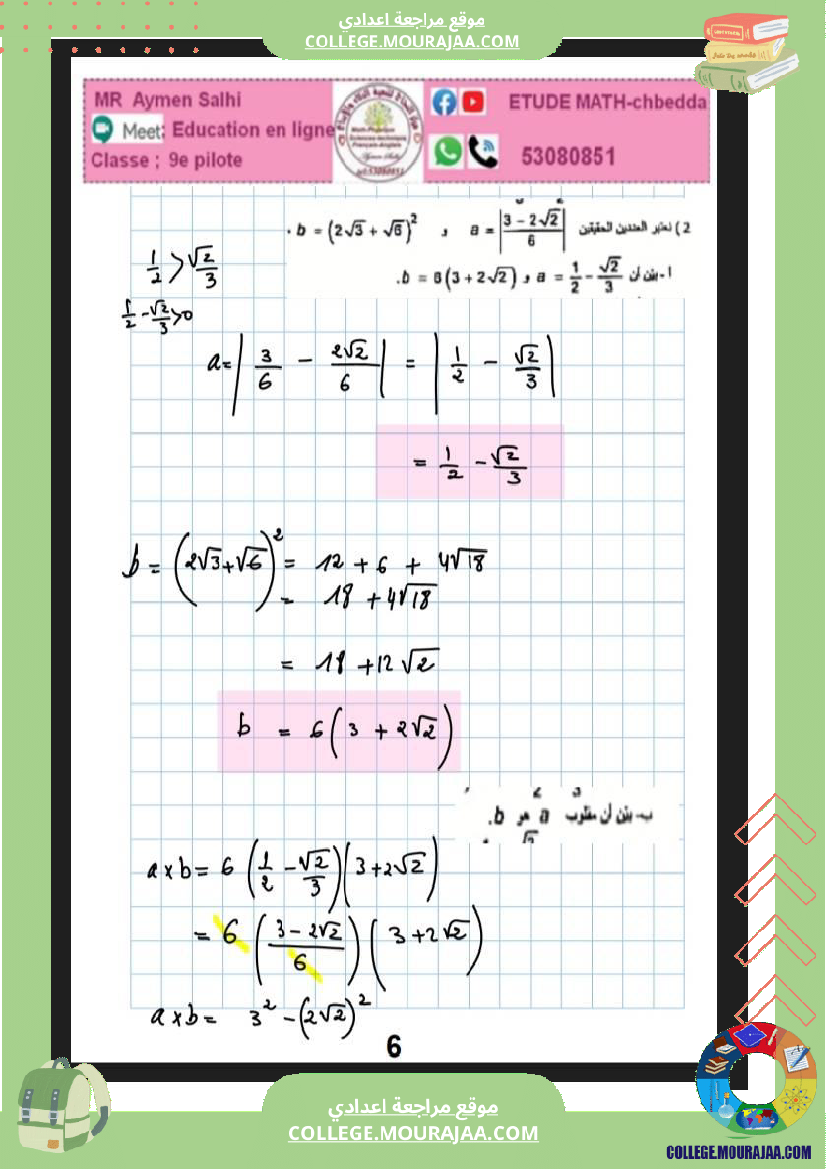 موقع مراجعة اعدادي
COLLEGE.MOURAJAA.COM
MR Aymen Salhi
Meet: Education en ligne
Classe ; 9e pilote
ETUDE MATH-chbedda
53080851
2) نعتبر العددين الحقيقين a = |(3 − 2√2)/6| و b = (2√3 + √6)² .
أ- بيّن أن a = 1/2 − √2/3 و b = 6(3 + 2√2).
1/2 > √2/3
1/2 − √2/3 > 0
a = | 3/6 − 2√2/6 | = | 1/2 − √2/3 |
= 1/2 − √2/3
b = (2√3 + √6)² = 12 + 6 + 4√18
= 18 + 4√18
= 18 + 12√2
b = 6(3 + 2√2)
ب- بيّن أن مقلوب a هو b.
a × b = 6 (1/2 − √2/3)(3 + 2√2)
= 6 ((3 − 2√2)/6)(3 + 2√2)
a × b = 3² − (2√2)²
6
موقع مراجعة اعدادي
COLLEGE.MOURAJAA.COM
COLLEGE.MOURAJAA.COM